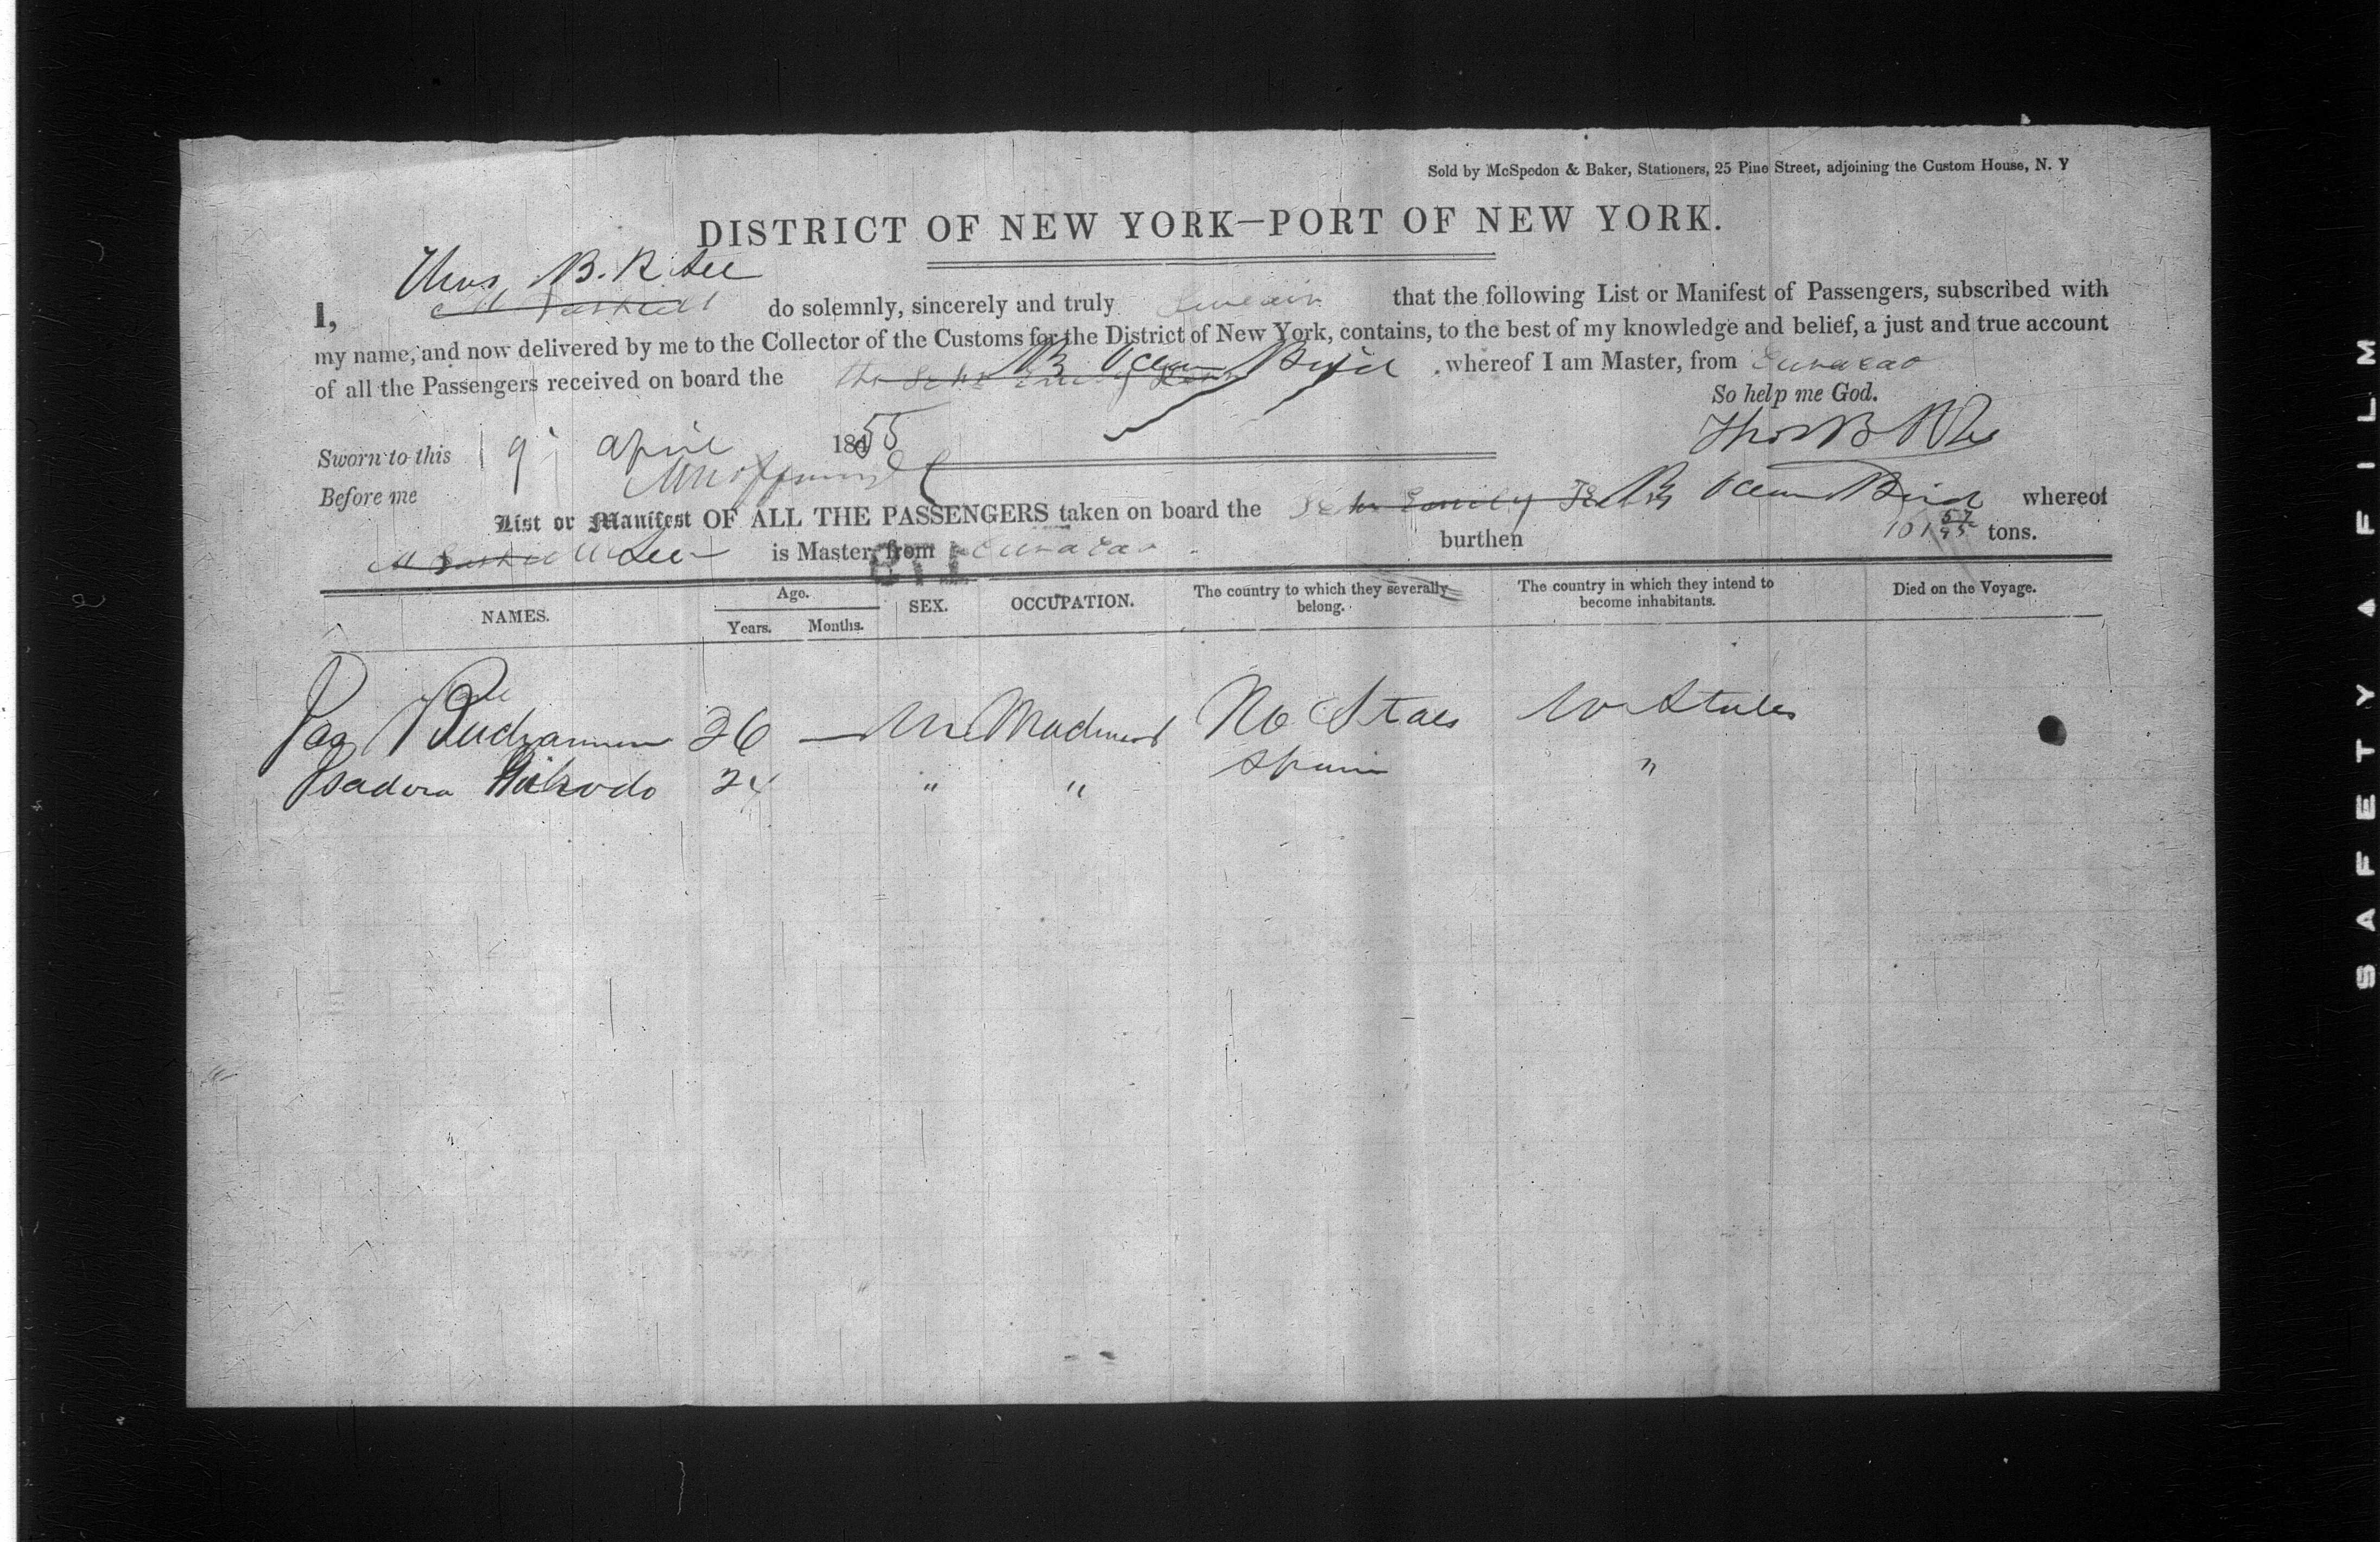 Sold by McSpedon & Baker, Stationers, 25 Pine Street, adjoining the Custom House, N. Y
DISTRICT OF NEW YORK—PORT OF NEW YORK.
Thos B. R. Lee
I, do solemnly, sincerely and truly swear that the following List or Manifest of Passengers, subscribed with
my name, and now delivered by me to the Collector of the Customs for the District of New York, contains, to the best of my knowledge and belief, a just and true account
of all the Passengers received on board the B Ocean Bird whereof I am Master, from Curacao
So help me God.
Sworn to this 9 april 1855
Before me
List or Manifest OF ALL THE PASSENGERS taken on board the Schr Emily B Ocean Bird whereof
Lee is Master, from Curacao burthen 101 57/95 tons.
NAMES. Age. Years. Months. SEX. OCCUPATION. The country to which they severally belong. The country in which they intend to become inhabitants. Died on the Voyage.
Jas Buchannan 26 — M States States
Isadora 24 " " Spain "
SAFETY A FILM